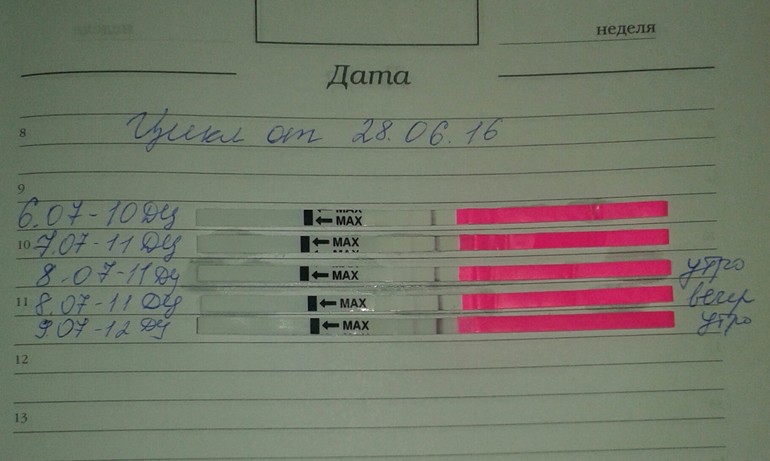 неделя
Дата
8
Цикл от 28.06.16
9
6.07-10 ДЦ ← MAX
10 7.07-11 ДЦ ← MAX
8.07-11 ДЦ ← MAX утро
11 8.07-11 ДЦ ← MAX вечер
9.07-12 ДЦ ← MAX утро
12
13